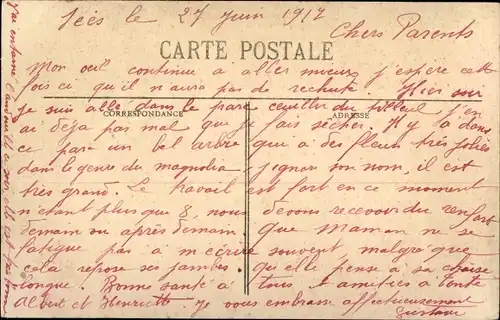 Sées le 27 Juin 1917
Chers Parents
CARTE POSTALE
Mon oeil continue à aller mieux j'espère cette
fois ce qu'il n'aura pas de rechute. Hier soir
je suis allé dans le parc cueillir du tilleul j'en
CORRESPONDANCE
ADRESSE
ai déjà pas mal que je fais sécher. Il y a dans
ce parc un bel arbre que a des fleurs très jolies
dans le genre du magnolia j'ignore son nom, il est
très grand. Le travail est fort en ce moment
n'étant plus que 8, nous devons recevoir du renfort
demain ou après demain. que Maman ne se
fatigue pas à m'écrire souvent malgré que
cela repose ses jambes. qu'elle pense à sa chaise
longue. Bonne santé à tous amitiés à toute
Albert et Henriette je vous embrasse affectueusement
Gustave
J'ai entamé